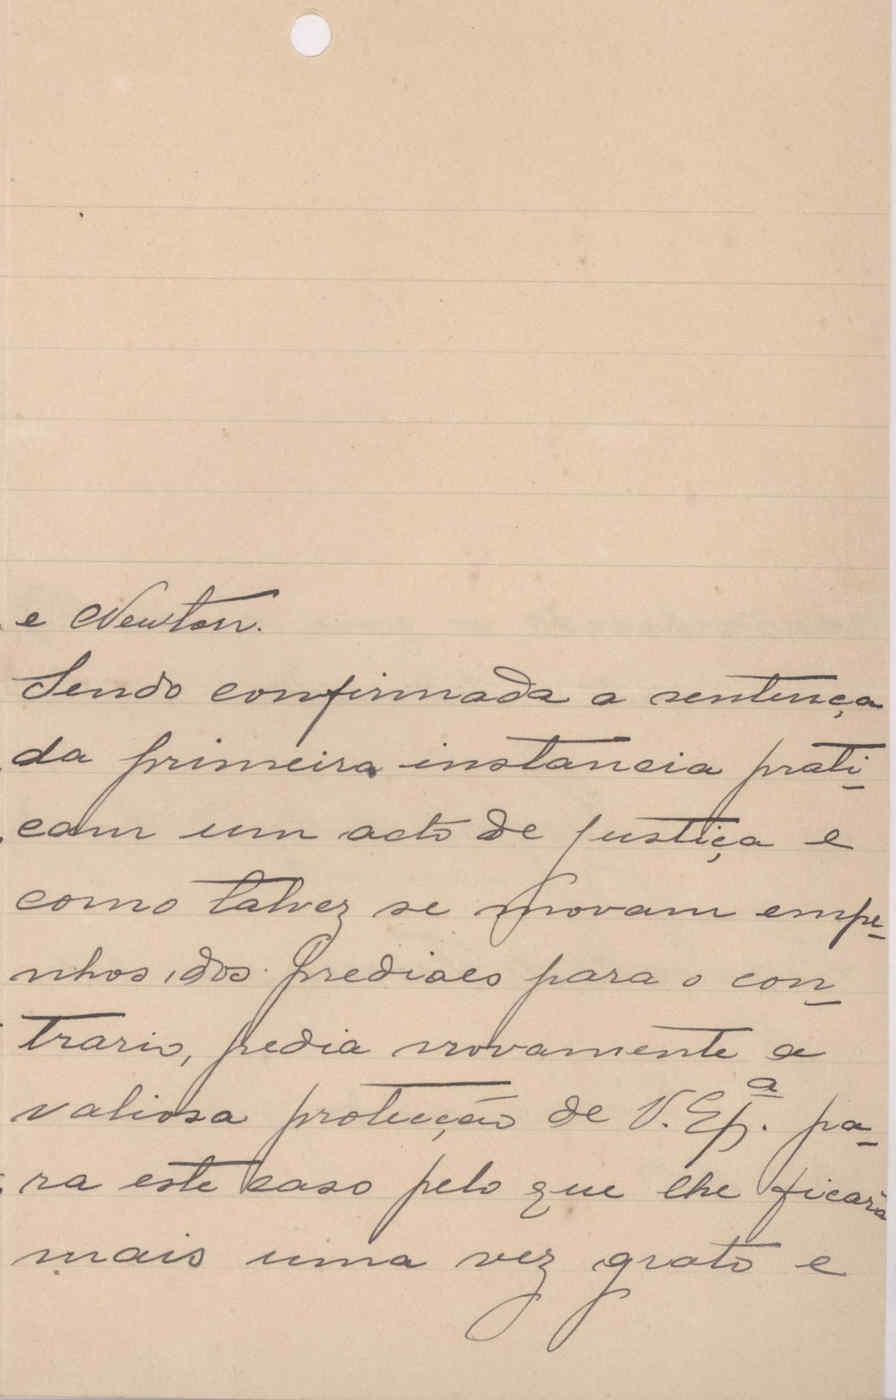 e Newton.
Sendo confirmada a sentença
da primeira instancia prati-
cam um acto de justiça e
como talvez se movam empe-
nhos, dos prediaes para o con-
trario, pedia novamente a
valiosa protecção de V. Exª. pa-
ra este caso pelo que lhe ficará
mais uma vez grato e